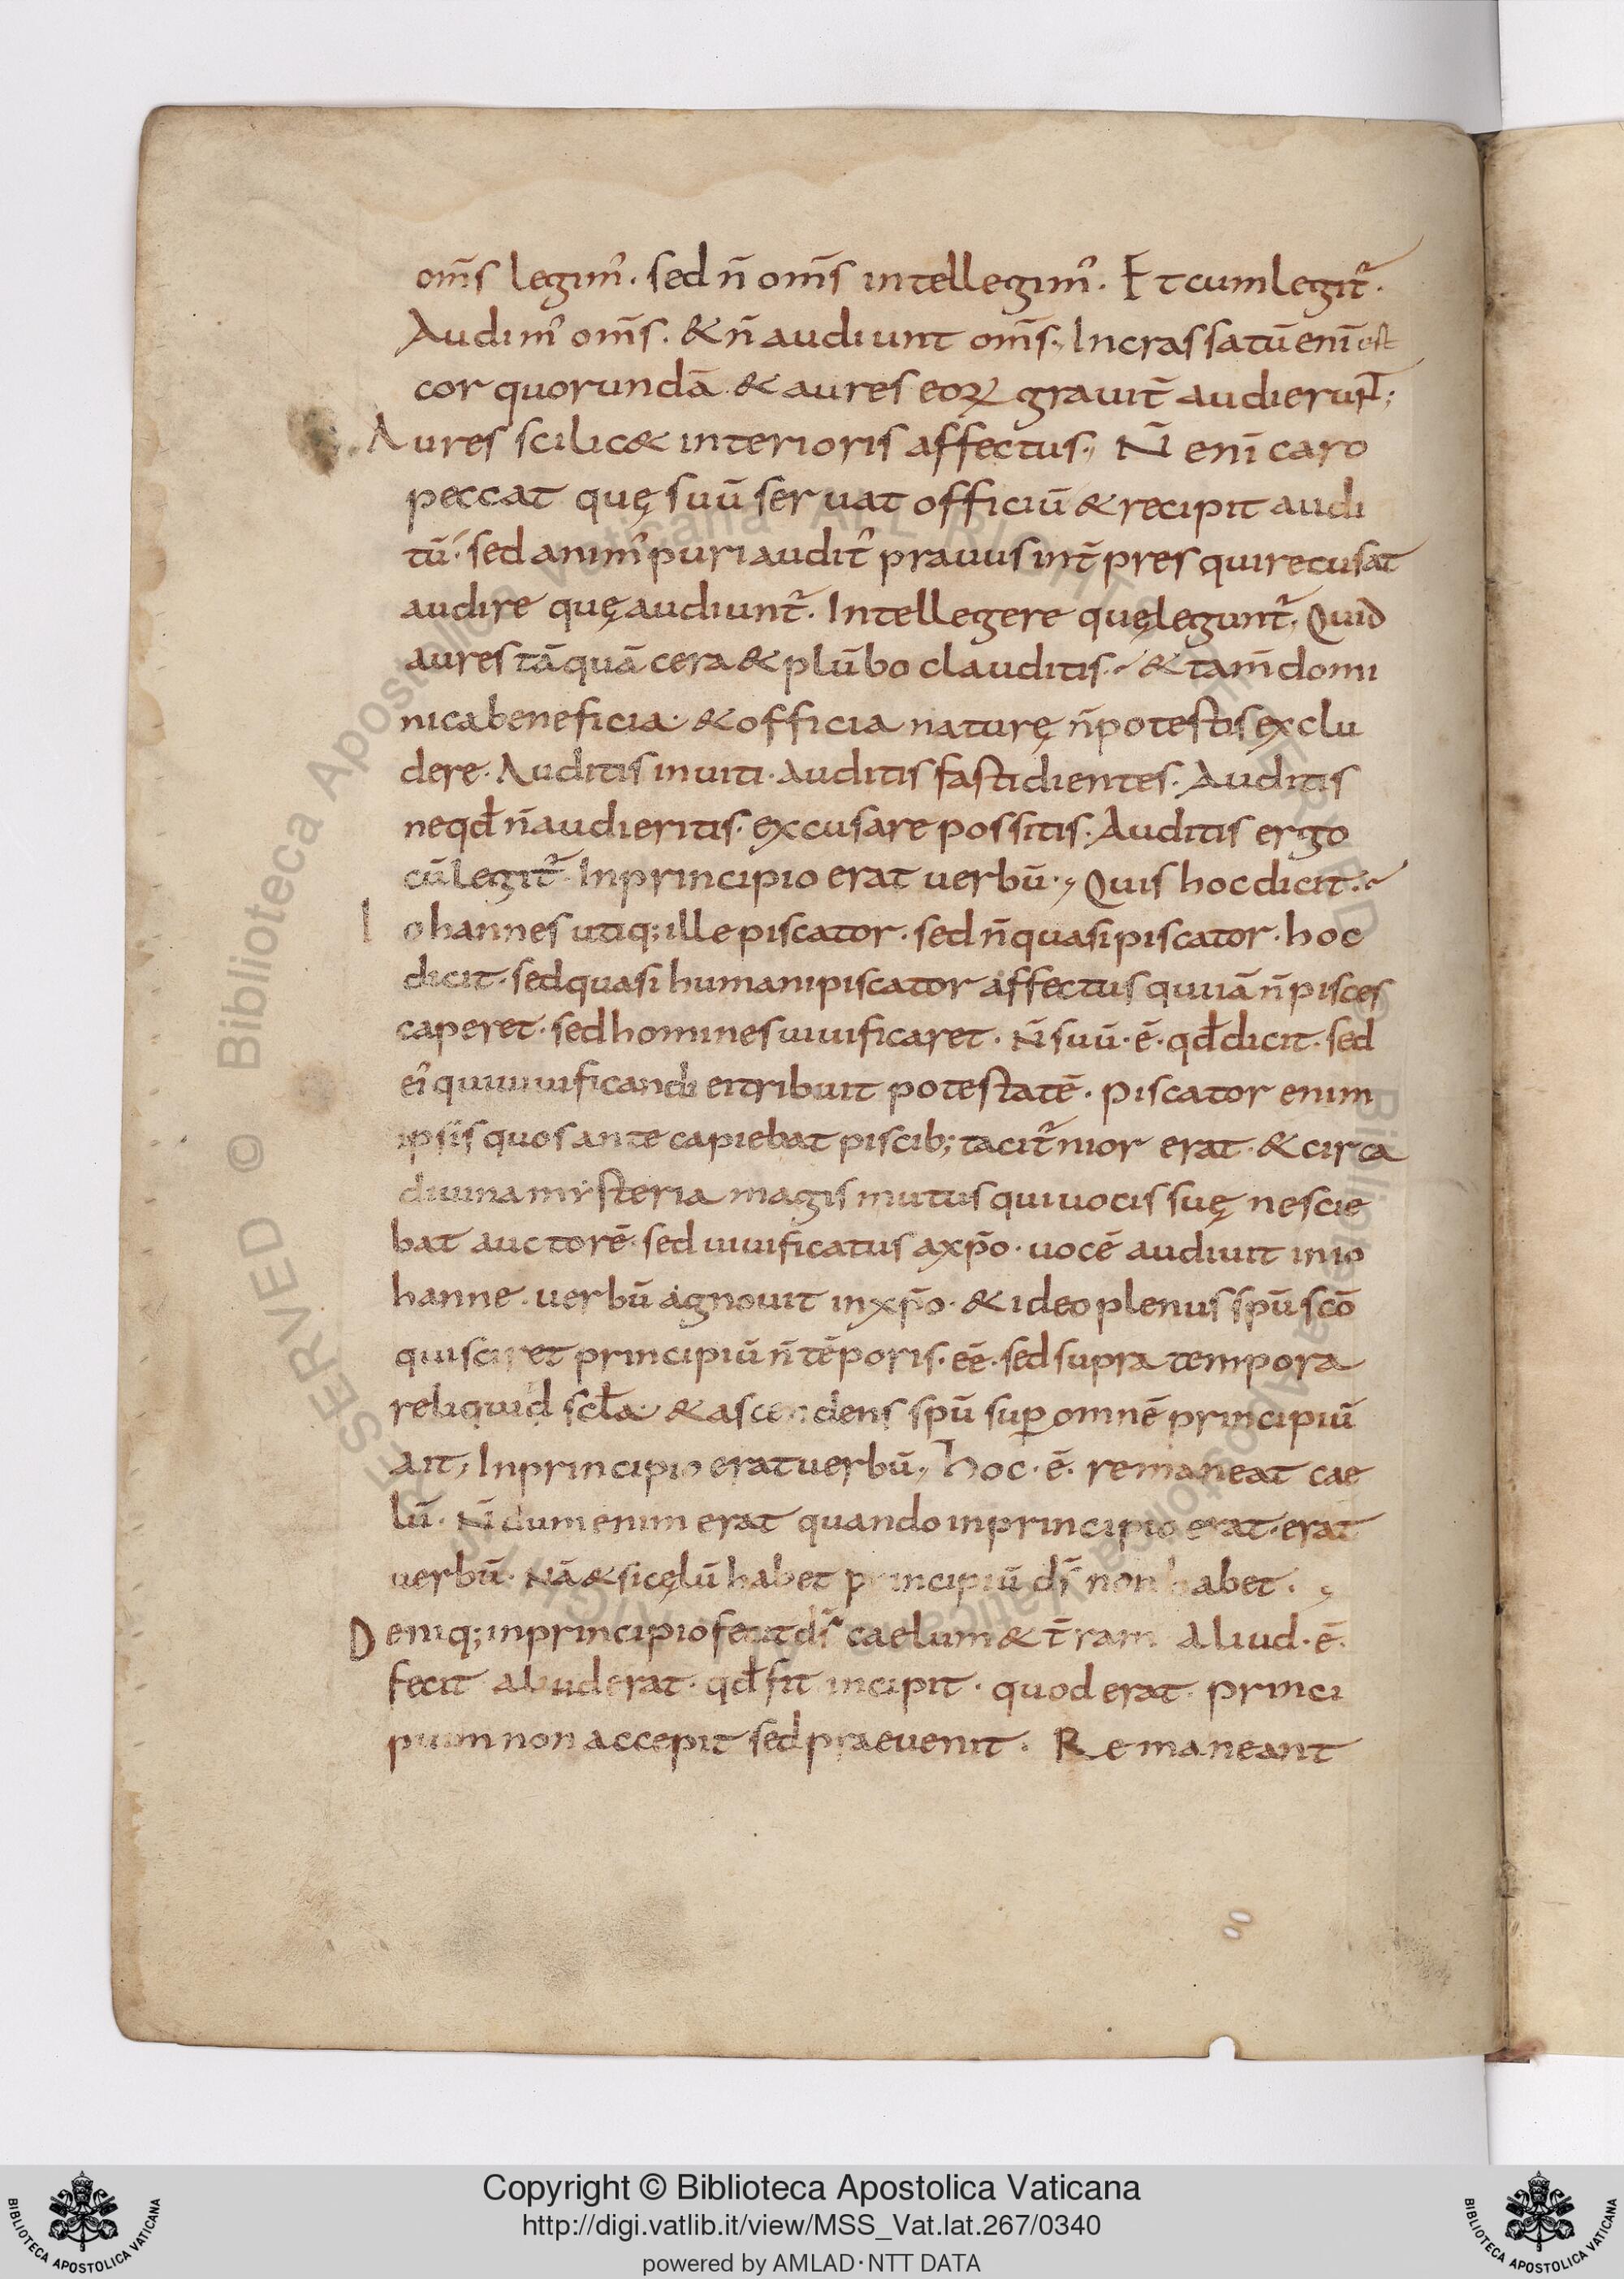 om̄s legim᾿. sed n̄ om̄s intellegim᾿. Et cum legit᷑.
Audim᾿ om̄s. & n̄ audiunt om̄s. Incrassatū enī est
cor quorundā & aures eoꝝ grauit̄ audierunt;
Aures scilic& interioris affectus. N̄ enī caro
peccat quę suū seruat officiū & recipit audi
tū. sed anim᾿ puri audit᾿ prauus int̄pres qui recusat
audire quę audiunt᷑. Intellegere quę legunt᷑. Quid
aures tāquā cera & plūbo clauditis. & tam̄ domi
nica beneficia. & officia naturę n̄ potestis exclu
dere. Auditis inuiti. auditis fastidientes. Auditis
ne qđ n̄ audieritis. excusare possitis. Auditis ergo
cū legit᷑ In principio erat uerbū. Quis hoc dicit.
Iohannes utiq; ille piscator. sed n̄ quasi piscator. hoc
dicit. sed quasi humani piscator affectus qui iā n̄ pisces
caperet. sed homines uiuificaret. N̄ suū. ē. qđ dicit. sed
ei᾿ qui uiuificandi ei tribuit potestatē. piscator enim
ipsis quos ante capiebat piscib; tacit᷑nior erat. & circa
diuina mẏsteria magis mutus qui uocis suę nescie
bat auctorē. sed uiuificatus a xp̄o. uocē audiuit in io
hanne. uerbū agnouit in xp̄o. & ideo plenus spū scō
qui sciret principiū n̄ tēporis. eē. sed supra tempora
reliquid scl̄a. & ascendens spū suꝑ omnē principiū
ait, In principio erat uerbū, hoc. ē. remaneat cae
lū. N̄dum enim erat quando in principio erat. erat
uerbū. Nā & si cęlū habet principiū dr̄ non habet.
Deniq; in principio fecit dr̄ caelum & t̄ram Aliud. ē.
fecit aliud erat. qđ fit incipit. quod erat. princi
pium non accepit sed praeuenit. Remaneant
Copyright © Biblioteca Apostolica Vaticana
http://digi.vatlib.it/view/MSS_Vat.lat.267/0340
powered by AMLAD·NTT DATA